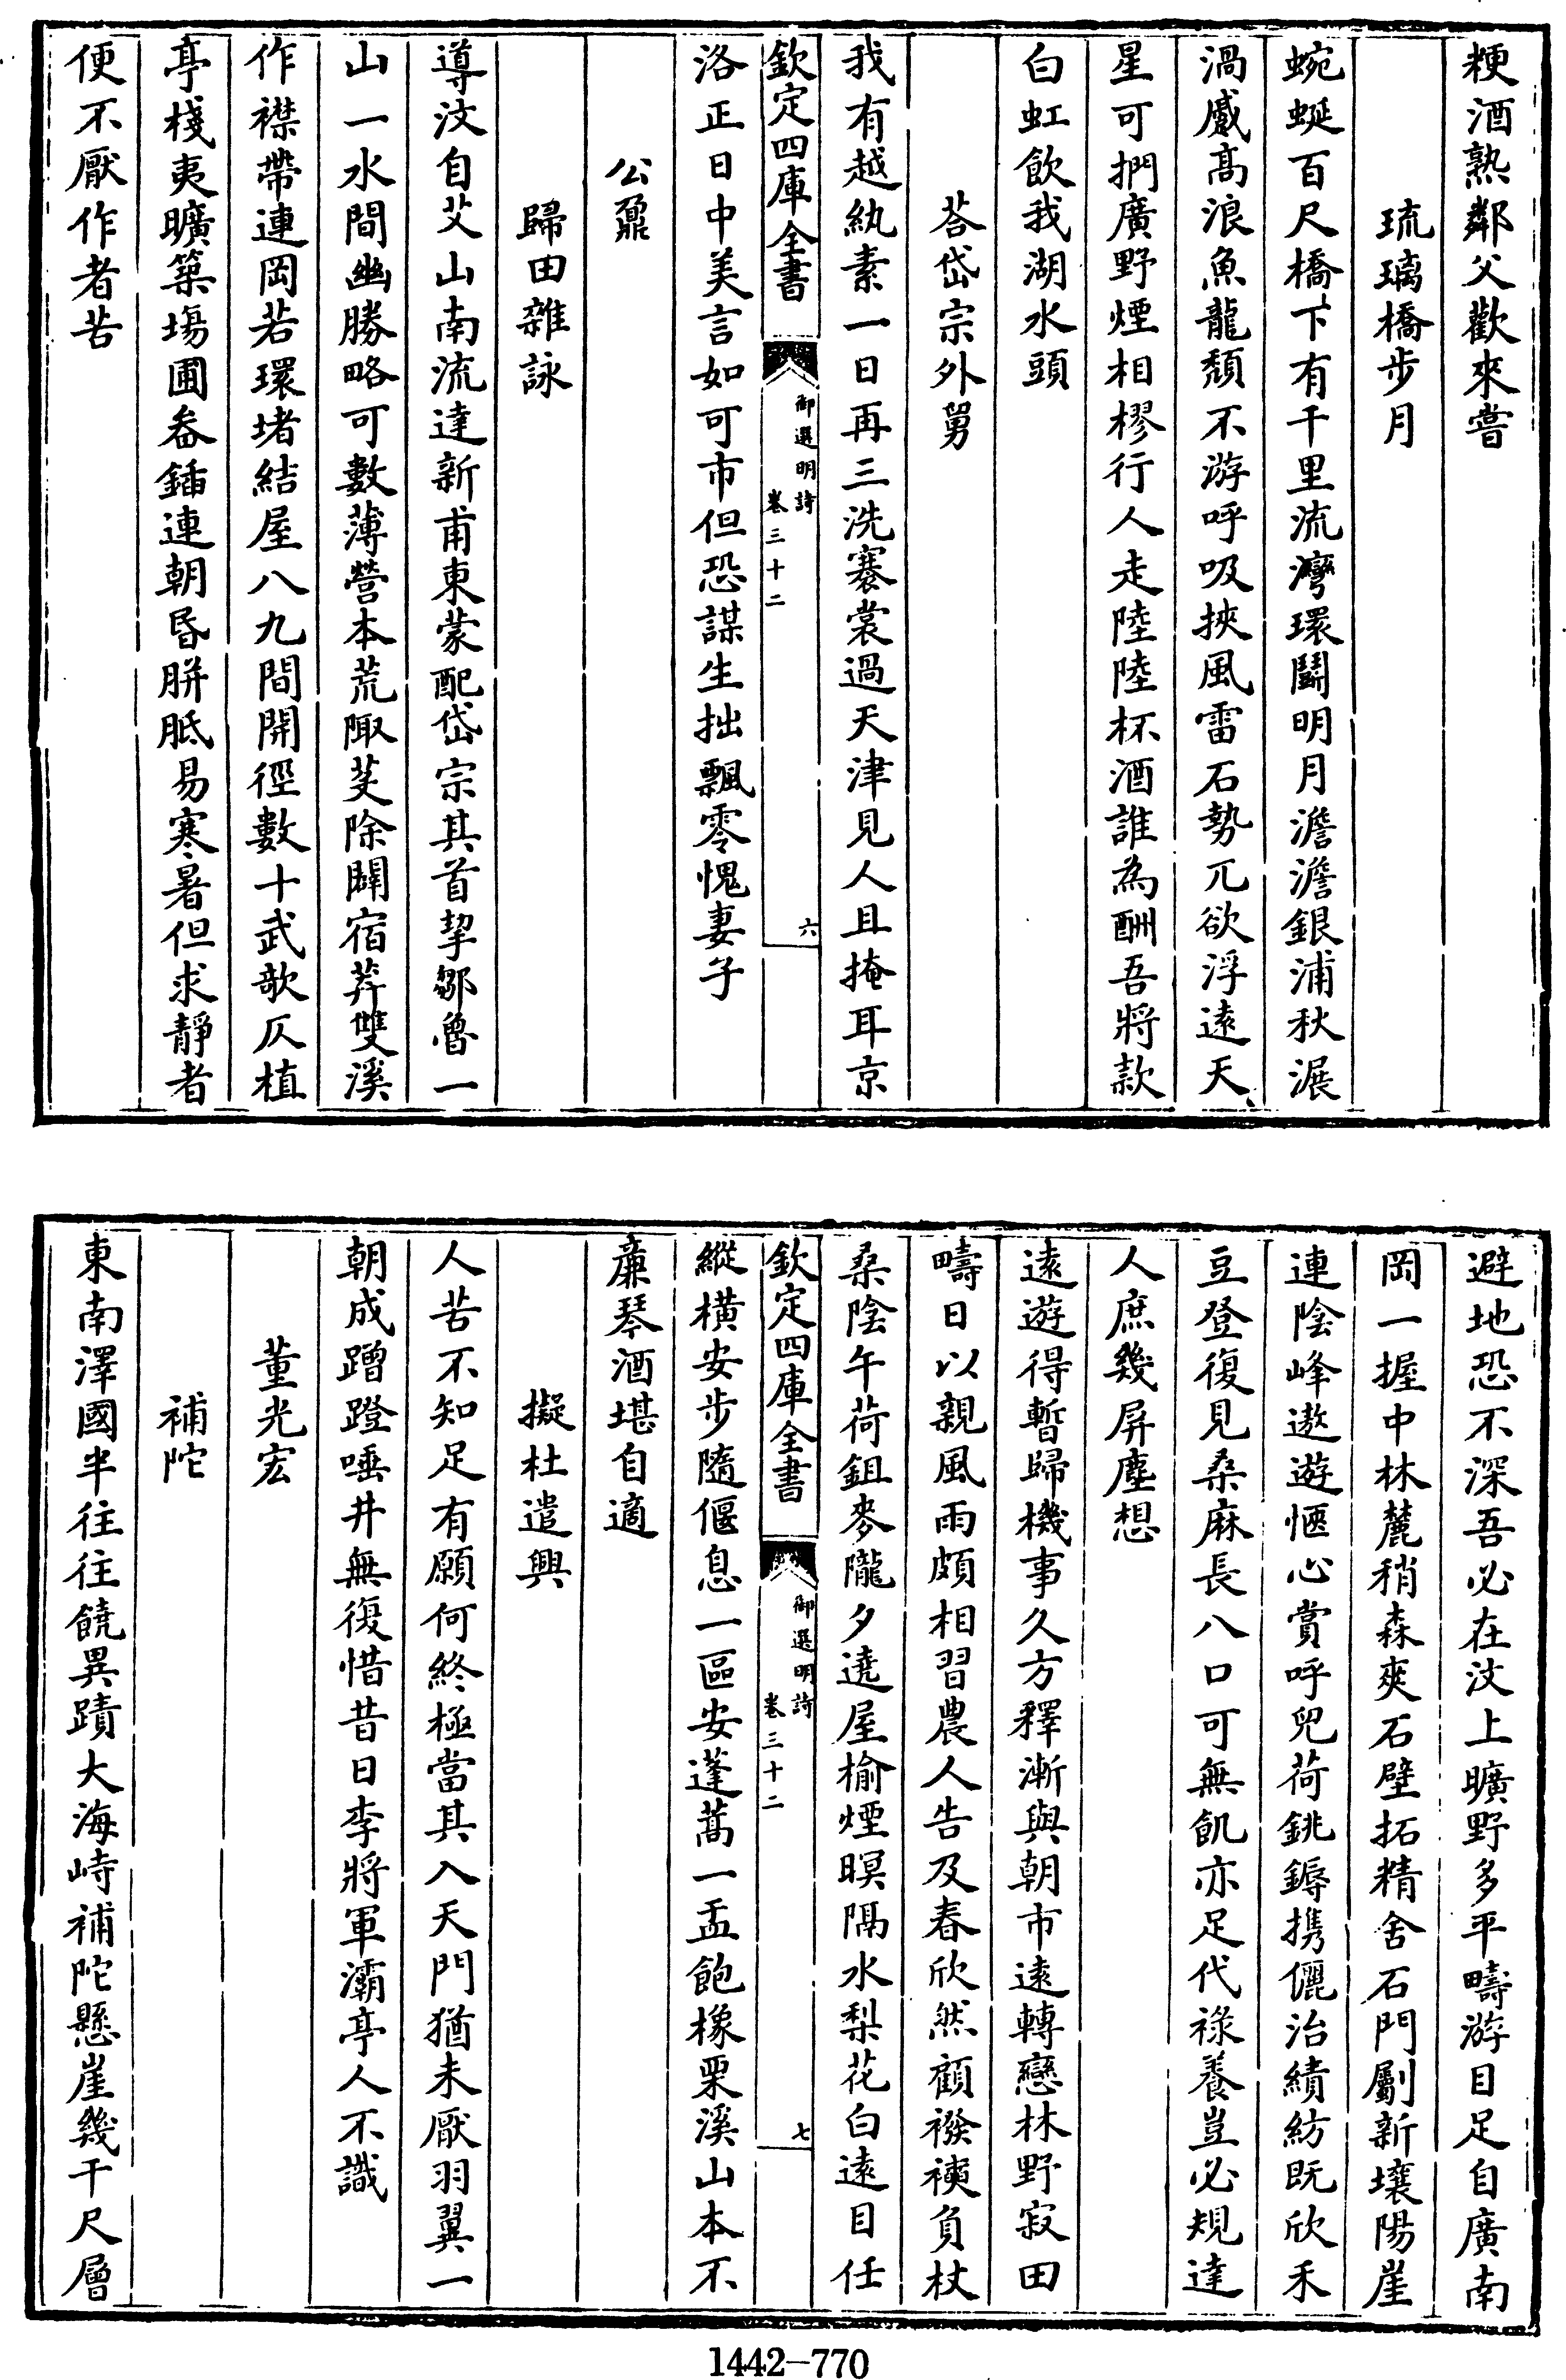 粳酒熟鄰父歡來嘗
琉璃橋步月
蜿蜒百尺橋下有千里流灣環闘明月澹澹銀浦秋漲
渦蹙髙浪魚龍頽不游呼吸挾風雷石勢兀欲浮逺天
星可捫廣野煙相樛行人走陸陸杯酒誰為酬吾將款
白虹飲我湖水頭
荅岱宗外舅
我有越紈素一日再三洗褰裳過天津見人且掩耳京
欽定四庫全書
御選明詩
卷三十二
六
洛正日中美言如可市但恐謀生拙飄零愧妻子
公鼐
歸田雜詠
導汶自艾山南流達新甫東蒙配岱宗其首挈鄒魯一
山一水間幽勝略可數薄營本荒陬芟除闢宿莽雙溪
作襟帶連岡若環堵結屋八九間開徑數十武欹仄植
亭棧夷曠築塲圃畚鍤連朝昏胼胝易寒暑但求靜者
便不厭作者苦
避地恐不深吾必在汶上曠野多平疇游目足自廣南
岡一握中林麓稍森爽石壁拓精舍石門劚新壤陽崖
連陰峰遨遊愜心賞呼兒荷銚鎒携儷治績紡既欣禾
豆登復見桑麻長八口可無飢亦足代祿養豈必規達
人庶幾屏塵想
逺遊得暫歸機事久方釋漸與朝市逺轉戀林野寂田
疇日以親風雨頗相習農人告及春欣然顧襏襫負杖
桑陰午荷鉏麥隴夕遶屋榆煙暝隔水梨花白逺目任
欽定四庫全書
御選明詩
卷三十二
七
縱橫安步隨偃息一區安蓬蒿一盂飽橡栗溪山本不
廉琴酒堪自適
擬杜遣興
人苦不知足有願何終極當其入天門猶未厭羽翼一
朝成蹭蹬唾井無復惜昔日李將軍灞亭人不識
董光宏
補陀
東南澤國半往往饒異蹟大海峙補陀懸崖幾千尺層
1442-770